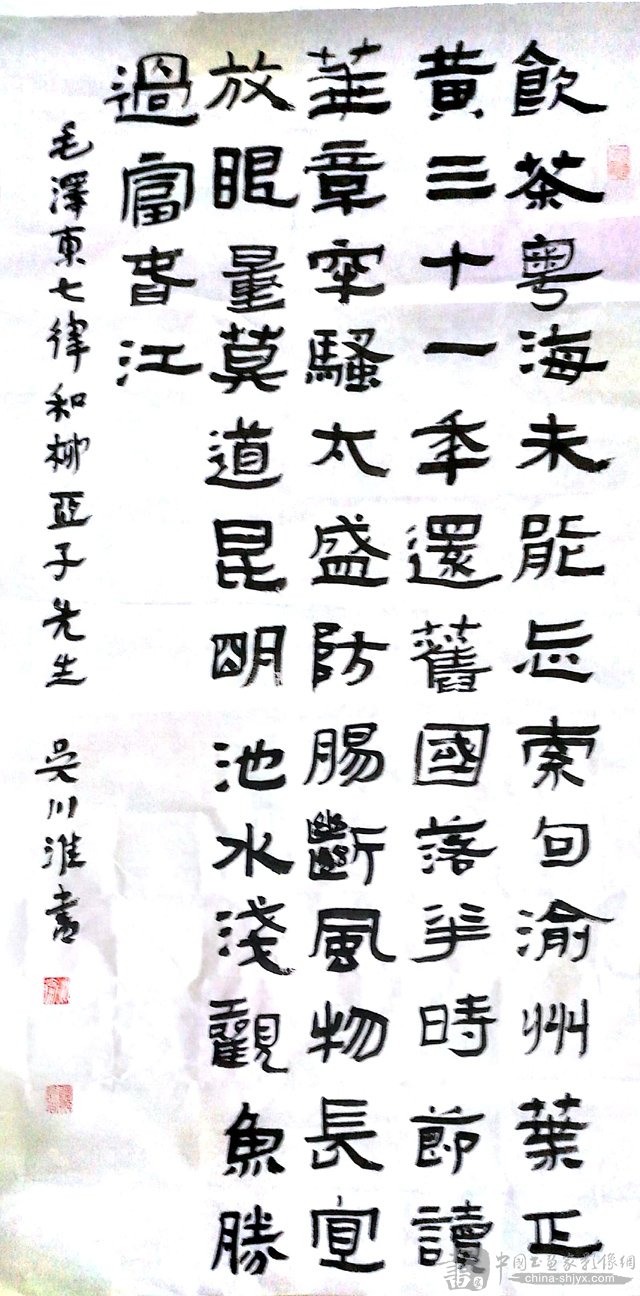 飲茶粵海未能忘索句渝州葉正
黃三十一年還舊國落花時節讀
華章牢騷太盛防腸斷風物長宜
放眼量莫道昆明池水淺觀魚勝
過富春江
毛澤東七律和柳亞子先生 吳川淮書
中國書畫家影像網
china-shjyx.com